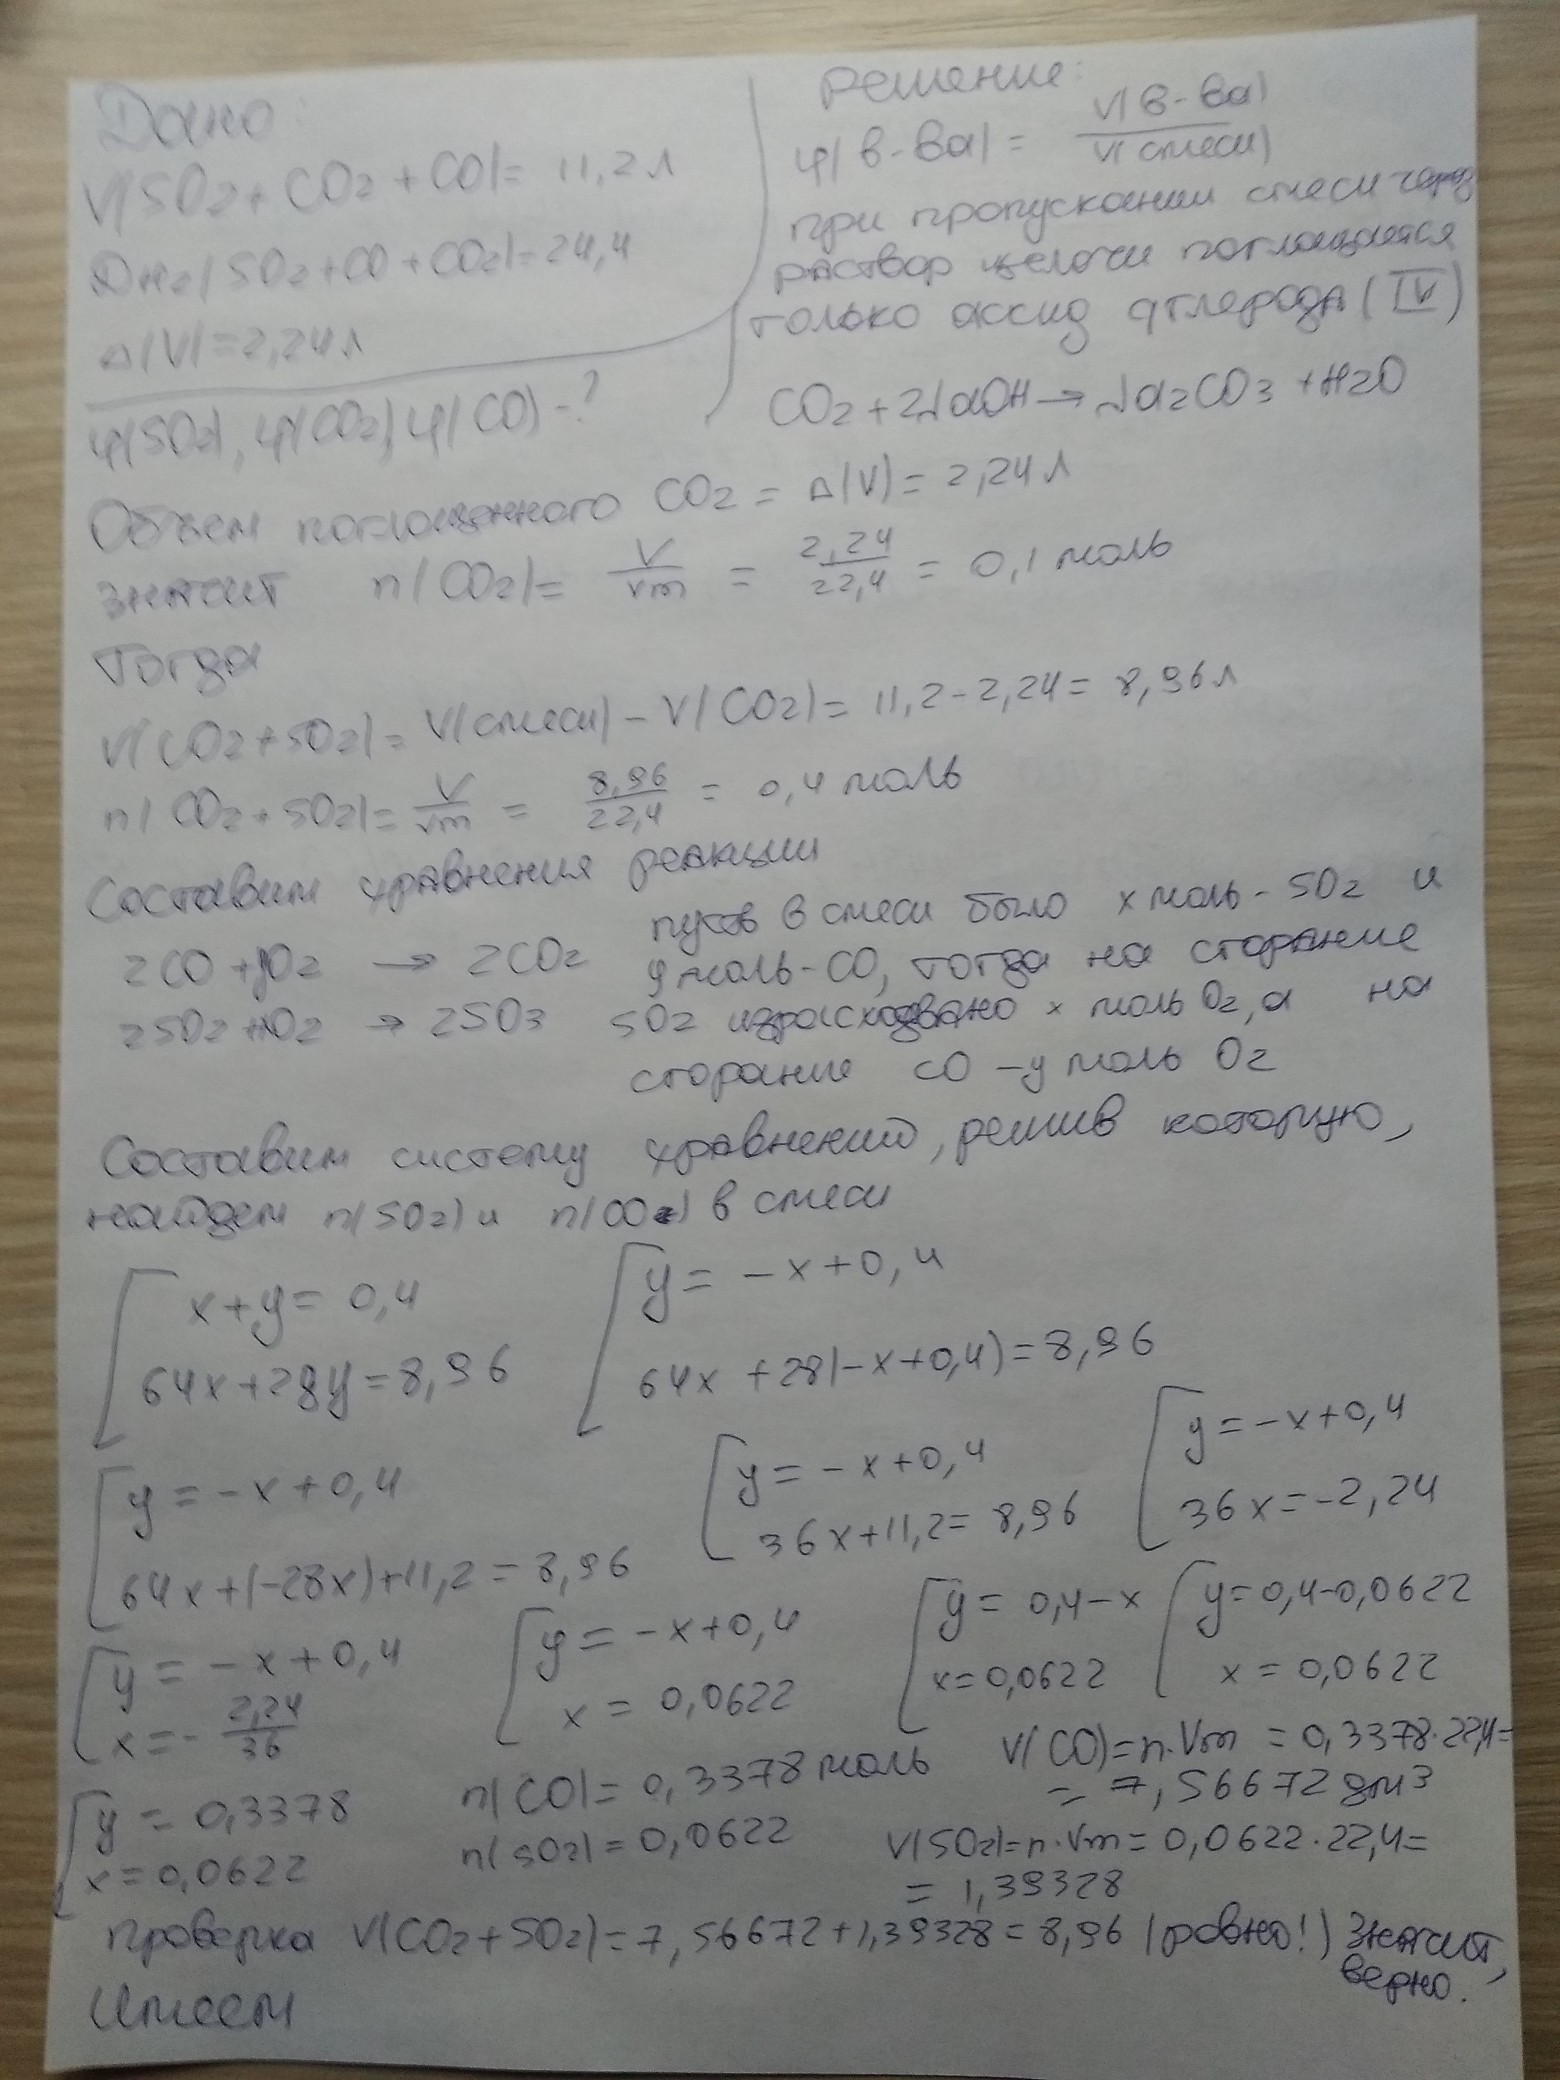 Дано:
V(SO2 + CO2 + CO) = 11,2 л
DH2(SO2 + CO + CO2) = 24,4
Δ(V) = 2,24 л
φ(SO2), φ(CO2), φ(CO) - ?
Решение:
φ(в-ва) = V(в-ва) / V(смеси)
при пропускании смеси через
раствор щелочи поглощается
только оссид углерода (IV)
CO2 + 2NaOH → Na2CO3 + H2O
Объем поглощенного CO2 = Δ(V) = 2,24 л
значит n(CO2) = V/Vm = 2,24/22,4 = 0,1 моль
Тогда
V(CO2 + SO2) = V(смеси) - V(CO2) = 11,2 - 2,24 = 8,96 л
n(CO2 + SO2) = V/Vm = 8,96/22,4 = 0,4 моль
Составим уравнения реакции
2CO + O2 → 2CO2
2SO2 + O2 → 2SO3
пусть в смеси было x моль - SO2 и
y моль - CO, тогда на сгорание
SO2 израсходовано x моль O2, а на
сгорание CO - y моль O2
Составим систему уравнений, решив которую,
найдем n(SO2) и n(CO) в смеси
x + y = 0,4
64x + 28y = 8,96
y = -x + 0,4
64x + 28(-x + 0,4) = 8,96
y = -x + 0,4
64x + (-28x) + 11,2 = 8,96
y = -x + 0,4
36x + 11,2 = 8,96
y = -x + 0,4
36x = -2,24
y = -x + 0,4
x = - 2,24/36
y = -x + 0,4
x = 0,0622
y = 0,4 - x
x = 0,0622
y = 0,4 - 0,0622
x = 0,0622
y = 0,3378
x = 0,0622
n(CO) = 0,3378 моль
n(SO2) = 0,0622
V(CO) = n·Vm = 0,3378·22,4 =
= 7,56672 дм3
V(SO2) = n·Vm = 0,0622·22,4 =
= 1,39328
Проверка V(CO2 + SO2) = 7,56672 + 1,39328 = 8,96 (ровно!) Значит,
верно.
Имеем